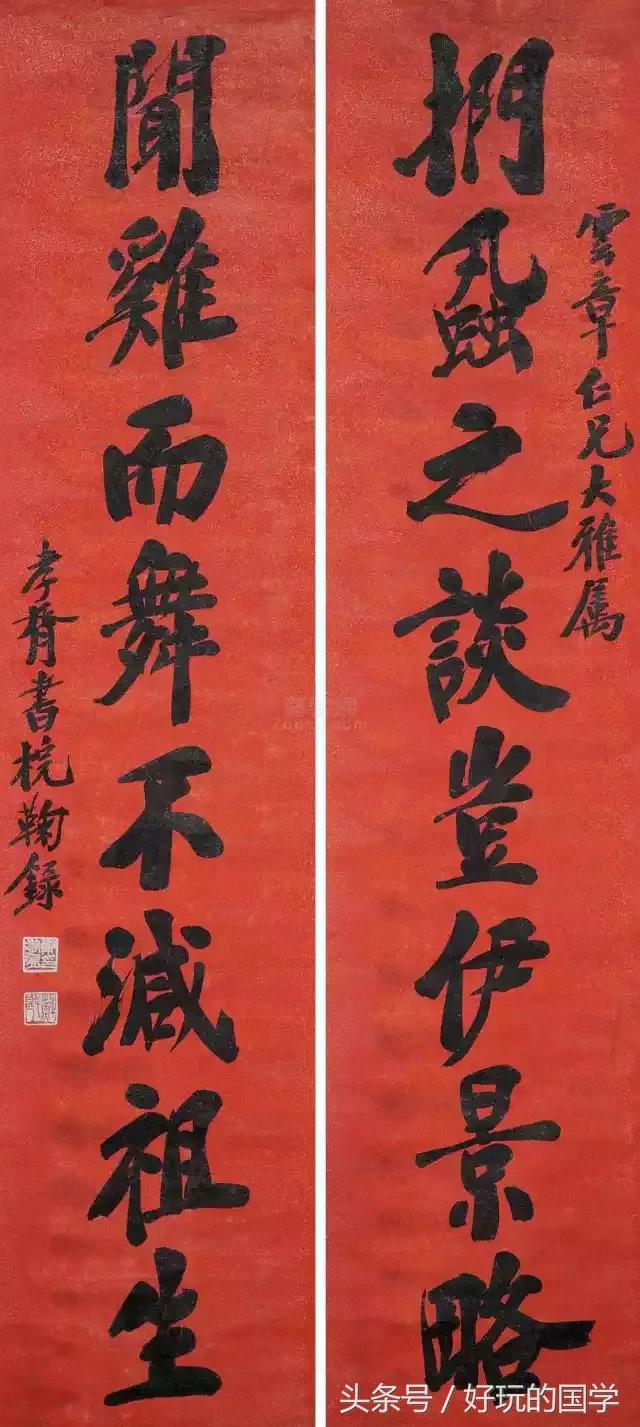 捫蝨之談豈伊景略
雲章仁兄大雅属
聞雞而舞不減祖生
孝胥書
頭条号 / 好玩的国学